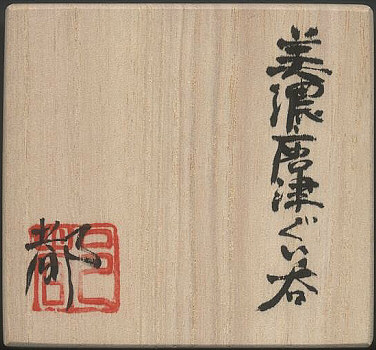 美濃唐津ぐい呑